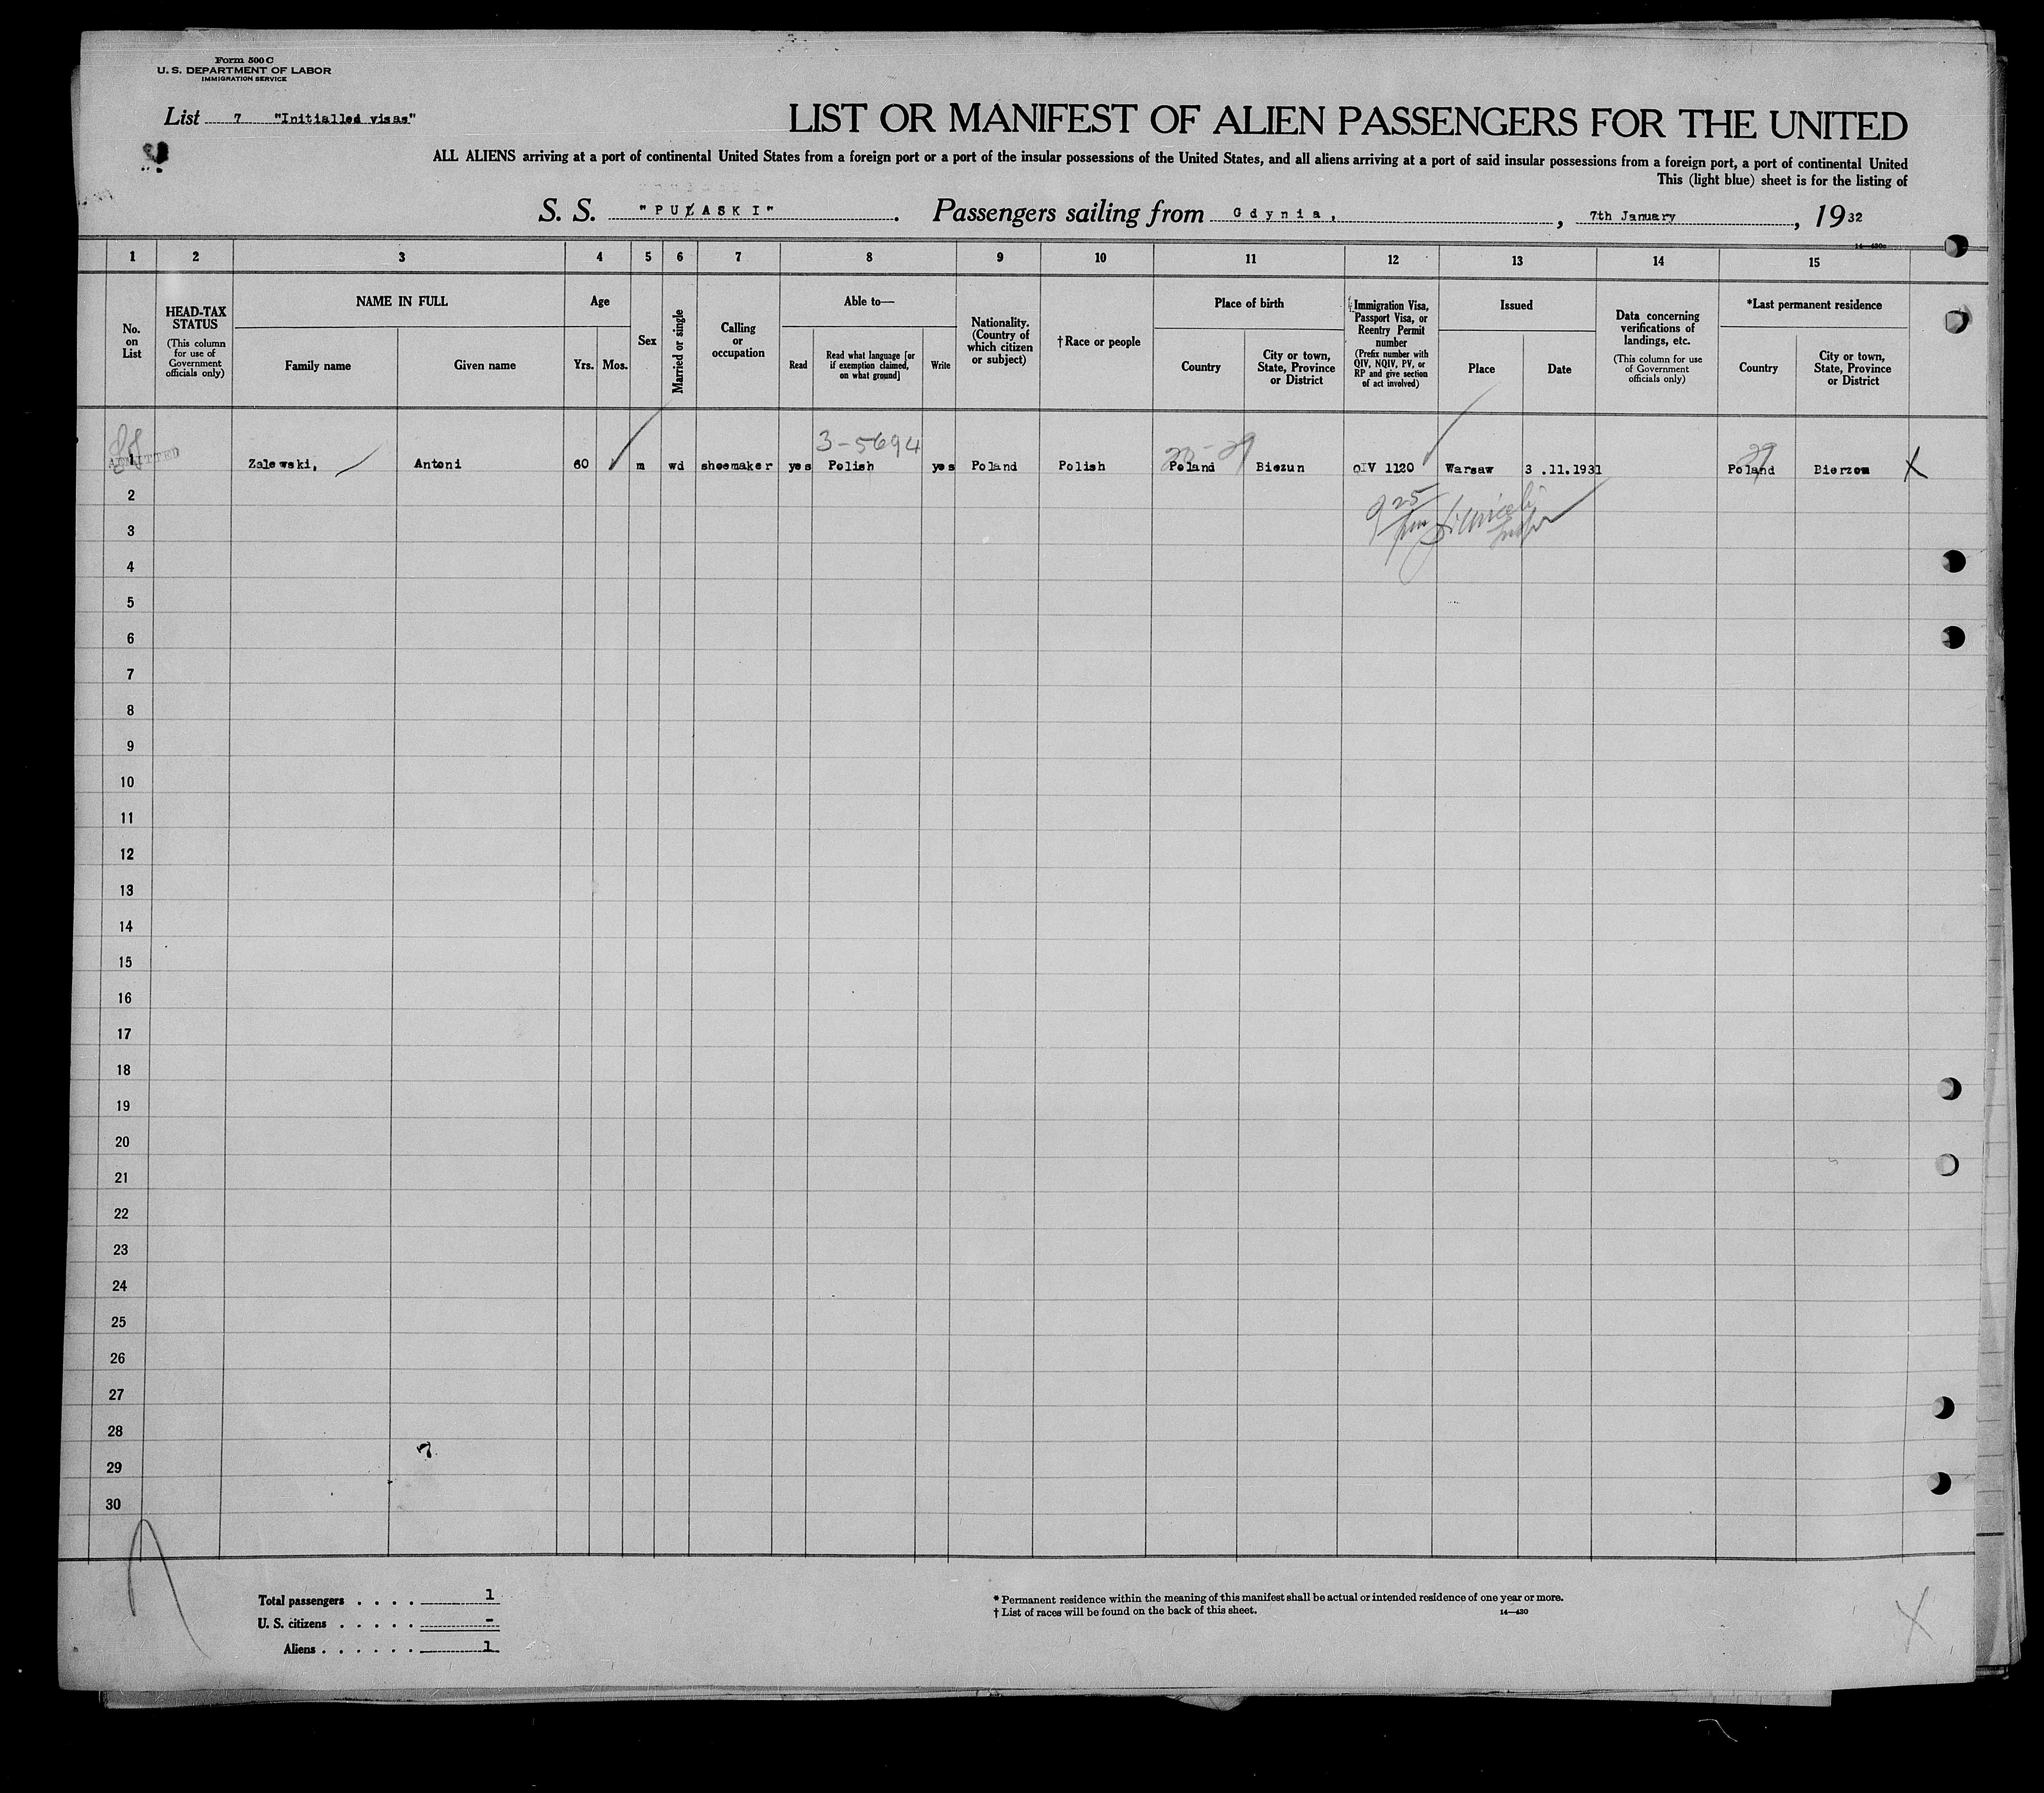 Form 500 C
U. S. DEPARTMENT OF LABOR
IMMIGRATION SERVICE
List 7 "Initialled visas"
LIST OR MANIFEST OF ALIEN PASSENGERS FOR THE UNITED
ALL ALIENS arriving at a port of continental United States from a foreign port or a port of the insular possessions of the United States, and all aliens arriving at a port of said insular possessions from a foreign port, a port of continental United
This (light blue) sheet is for the listing of
S. S. "PUŁASKI". Passengers sailing from Gdynia, , 7th January, 1932
14—430c
1 2 3 4 5 6 7 8 9 10 11 12 13 14 15
No. on List
HEAD-TAX STATUS
(This column for use of Government officials only)
NAME IN FULL
Family name
Given name
Age
Yrs. Mos.
Sex
Married or single
Calling or occupation
Able to—
Read
Read what language [or if exemption claimed, on what ground]
Write
Nationality. (Country of which citizen or subject)
†Race or people
Place of birth
Country
City or town, State, Province or District
Immigration Visa, Passport Visa, or Reentry Permit number
(Prefix number with QIV, NQIV, PV, or RP and give section of act involved)
Issued
Place
Date
Data concerning verifications of landings, etc.
(This column for use of Government officials only)
*Last permanent residence
Country
City or town, State, Province or District
88
3-5694
ADMITTED
1 Zalewski, Antoni 60 m wd shoemaker yes Polish yes Poland Polish Poland Biezun QIV 1120 Warsaw 3 .11.1931 Poland Bierzom X
29
2
925
3
4
5
6
7
8
9
10
11
12
13
14
15
16
17
18
19
20
21
22
23
24
25
26
27
28
29
30
Total passengers . . . . 1
U. S. citizens . . . . . -
Aliens . . . . . . 1
* Permanent residence within the meaning of this manifest shall be actual or intended residence of one year or more.
† List of races will be found on the back of this sheet.
14—430
X